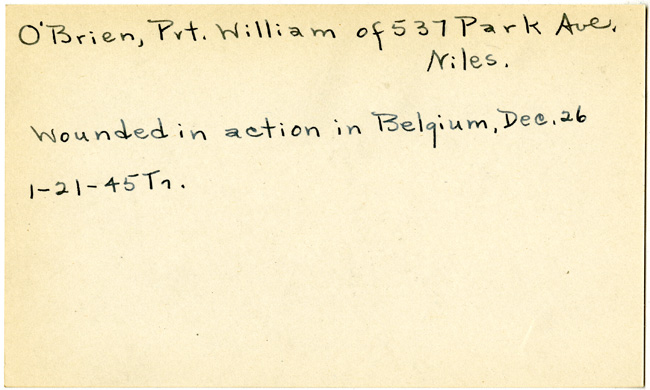 O'Brien, Pvt. William of 537 Park Ave.
Niles.
Wounded in action in Belgium, Dec. 26
1-21-45 Tr.